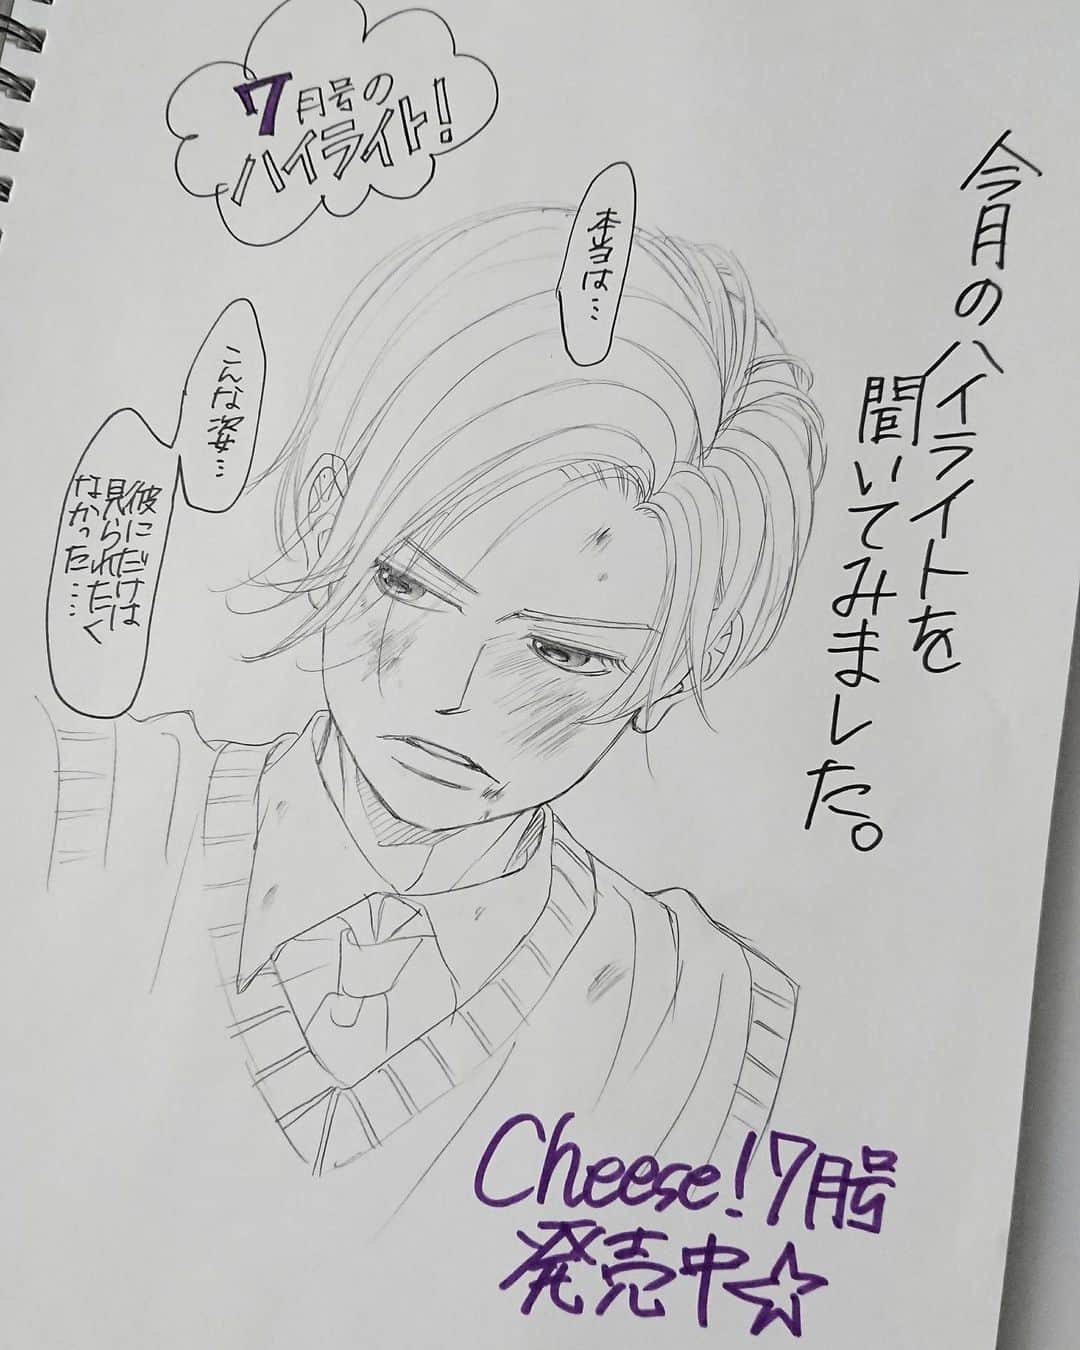 7月号の
ハイライト!
今月のハイライトを
聞いてみました。
本当は…
こんな姿…
彼にだけは
見られたく
なかった……
Cheese!7月号
発売中☆